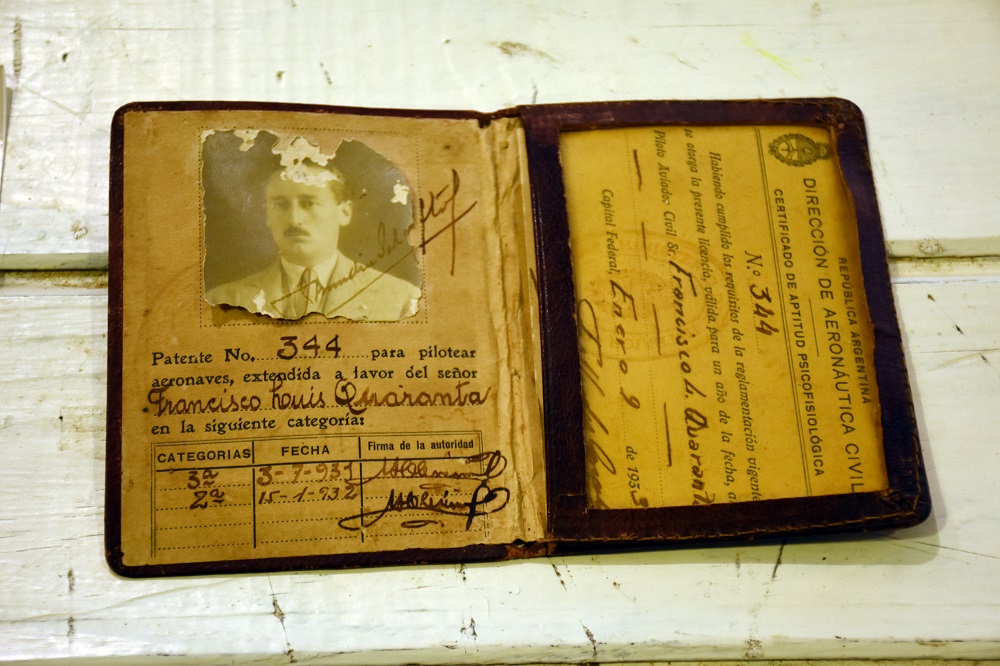 Patente No. 344 para pilotear
aeronaves, extendida a favor del señor
Francisco Luis Quaranta
en la siguiente categoría:
CATEGORIAS FECHA Firma de la autoridad
3ª 3-7-931
2ª 15-1-932
REPÚBLICA ARGENTINA
DIRECCIÓN DE AERONÁUTICA CIVIL
CERTIFICADO DE APTITUD PSICOFISIOLÓGICA
N.º 344
Habiendo cumplido los requisitos de la reglamentación vigente
se otorga la presente licencia, válida para un año de la fecha, a
Piloto Aviador Civil Sr. Francisco L. Quarant
Capital Federal, Enero 9 de 1933